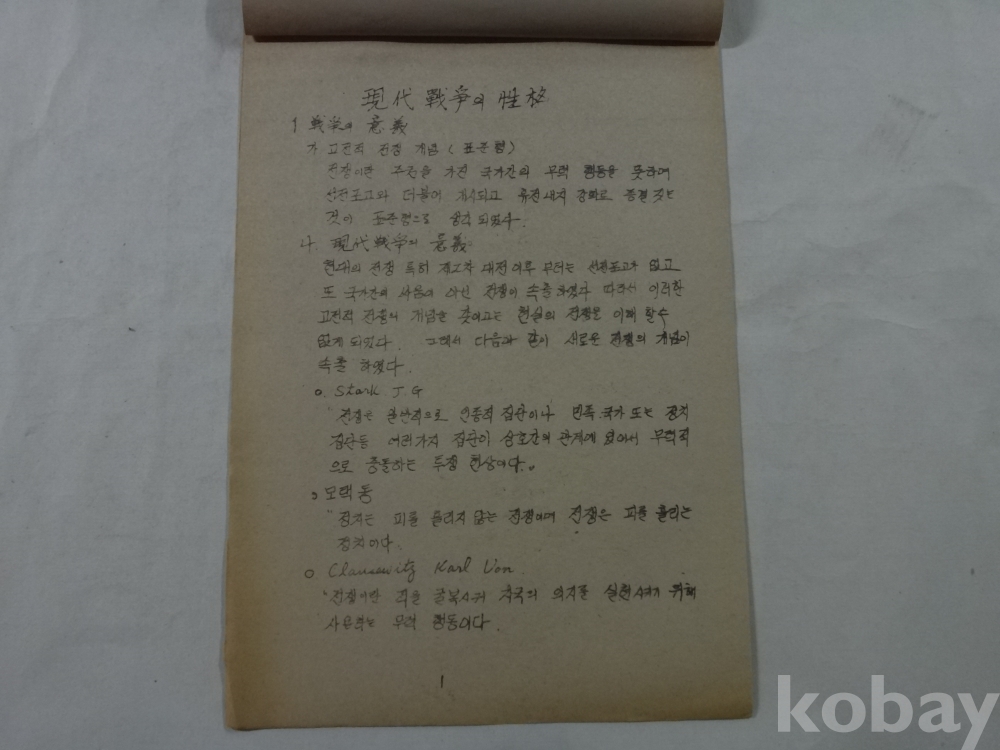 現代 戰爭의 性格
1 戰爭의 意義
가 고전적 전쟁 개념 ( 표준형 )
전쟁이란 주권을 가진 국가간의 무력 행동을 뜻하며
선전포고와 더불어 개시되고 휴전내지 강화로 종결 짓는
것이 표준형으로 생각 되였다.
나. 現代戰爭의 意義.
현대의 전쟁 특히 제2차 대전이후 부터는 선전포고가 없고
또 국가간의 싸움이 아닌 전쟁이 속출하였다 따라서 이러한
고전적 전쟁의 개념을 갖이고는 현실의 전쟁을 이해 할수
없게 되었다. 그래서 다음과 같이 새로운 전쟁의 개념이
속출 하였다.
o. Stark J.G
"전쟁은 일반적으로 인종적 집단이나 민족 국가 또는 정치
집단등 여러가지 집단이 상호간의 관계에 있어서 무력적
으로 충돌하는 투쟁 현상이다."
o 모택동
"정치는 피를 흘리지 않는 전쟁이며 전쟁은 피를 흘리는
정치이다.
o Clausewitz Karl Von.
"전쟁이란 적을 굴복시켜 자국의 의지를 실현시키기 위해
사용하는 무력 행동이다.
1
kobay